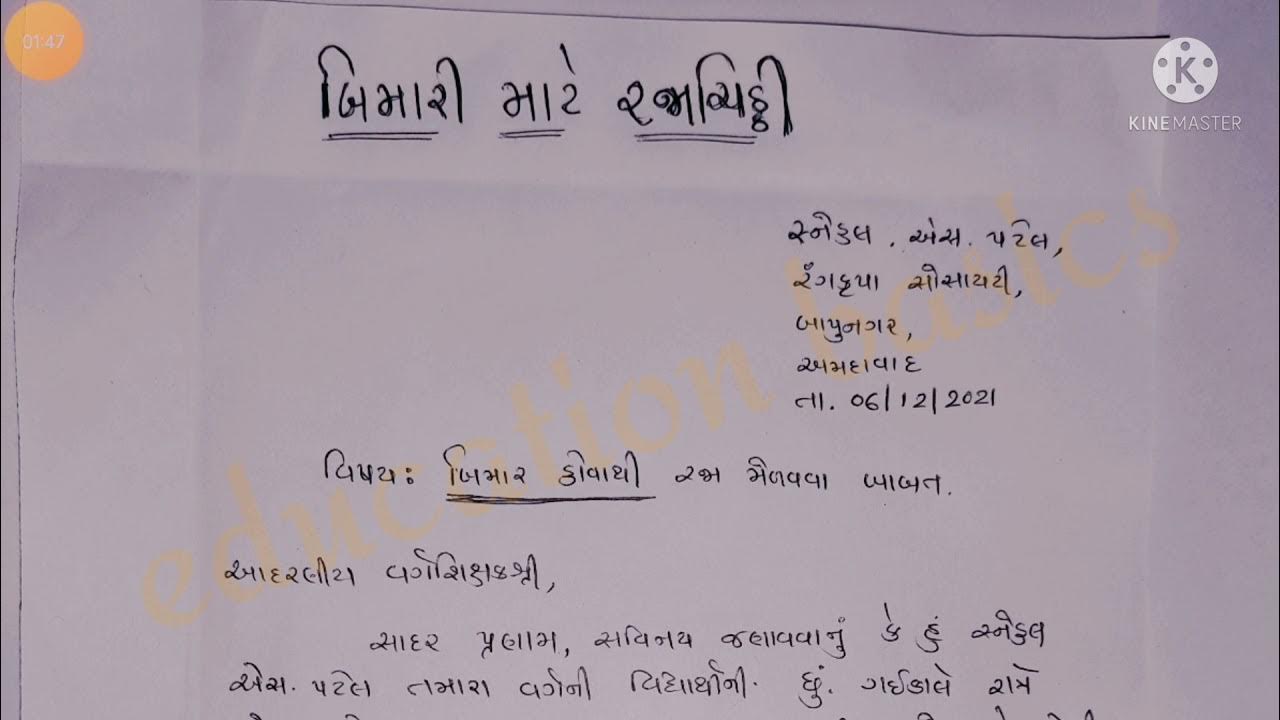 01:47
KINEMASTER
બિમારી માટે રજાચિઠ્ઠી
સ્નેહલ . એસ. પટેલ,
રંગકૃપા સોસાયટી,
બાપુનગર,
અમદાવાદ
તા. 06/12/2021
વિષય: બિમાર હોવાથી રજા મેળવવા બાબત.
education basics
આદરણીય વર્ગશિક્ષકશ્રી,
સાદર પ્રણામ, સવિનય જણાવવાનું કે હું સ્નેહલ
એસ. પટેલ તમારા વર્ગની વિદ્યાર્થીની છું. ગઈકાલે રાત્રે